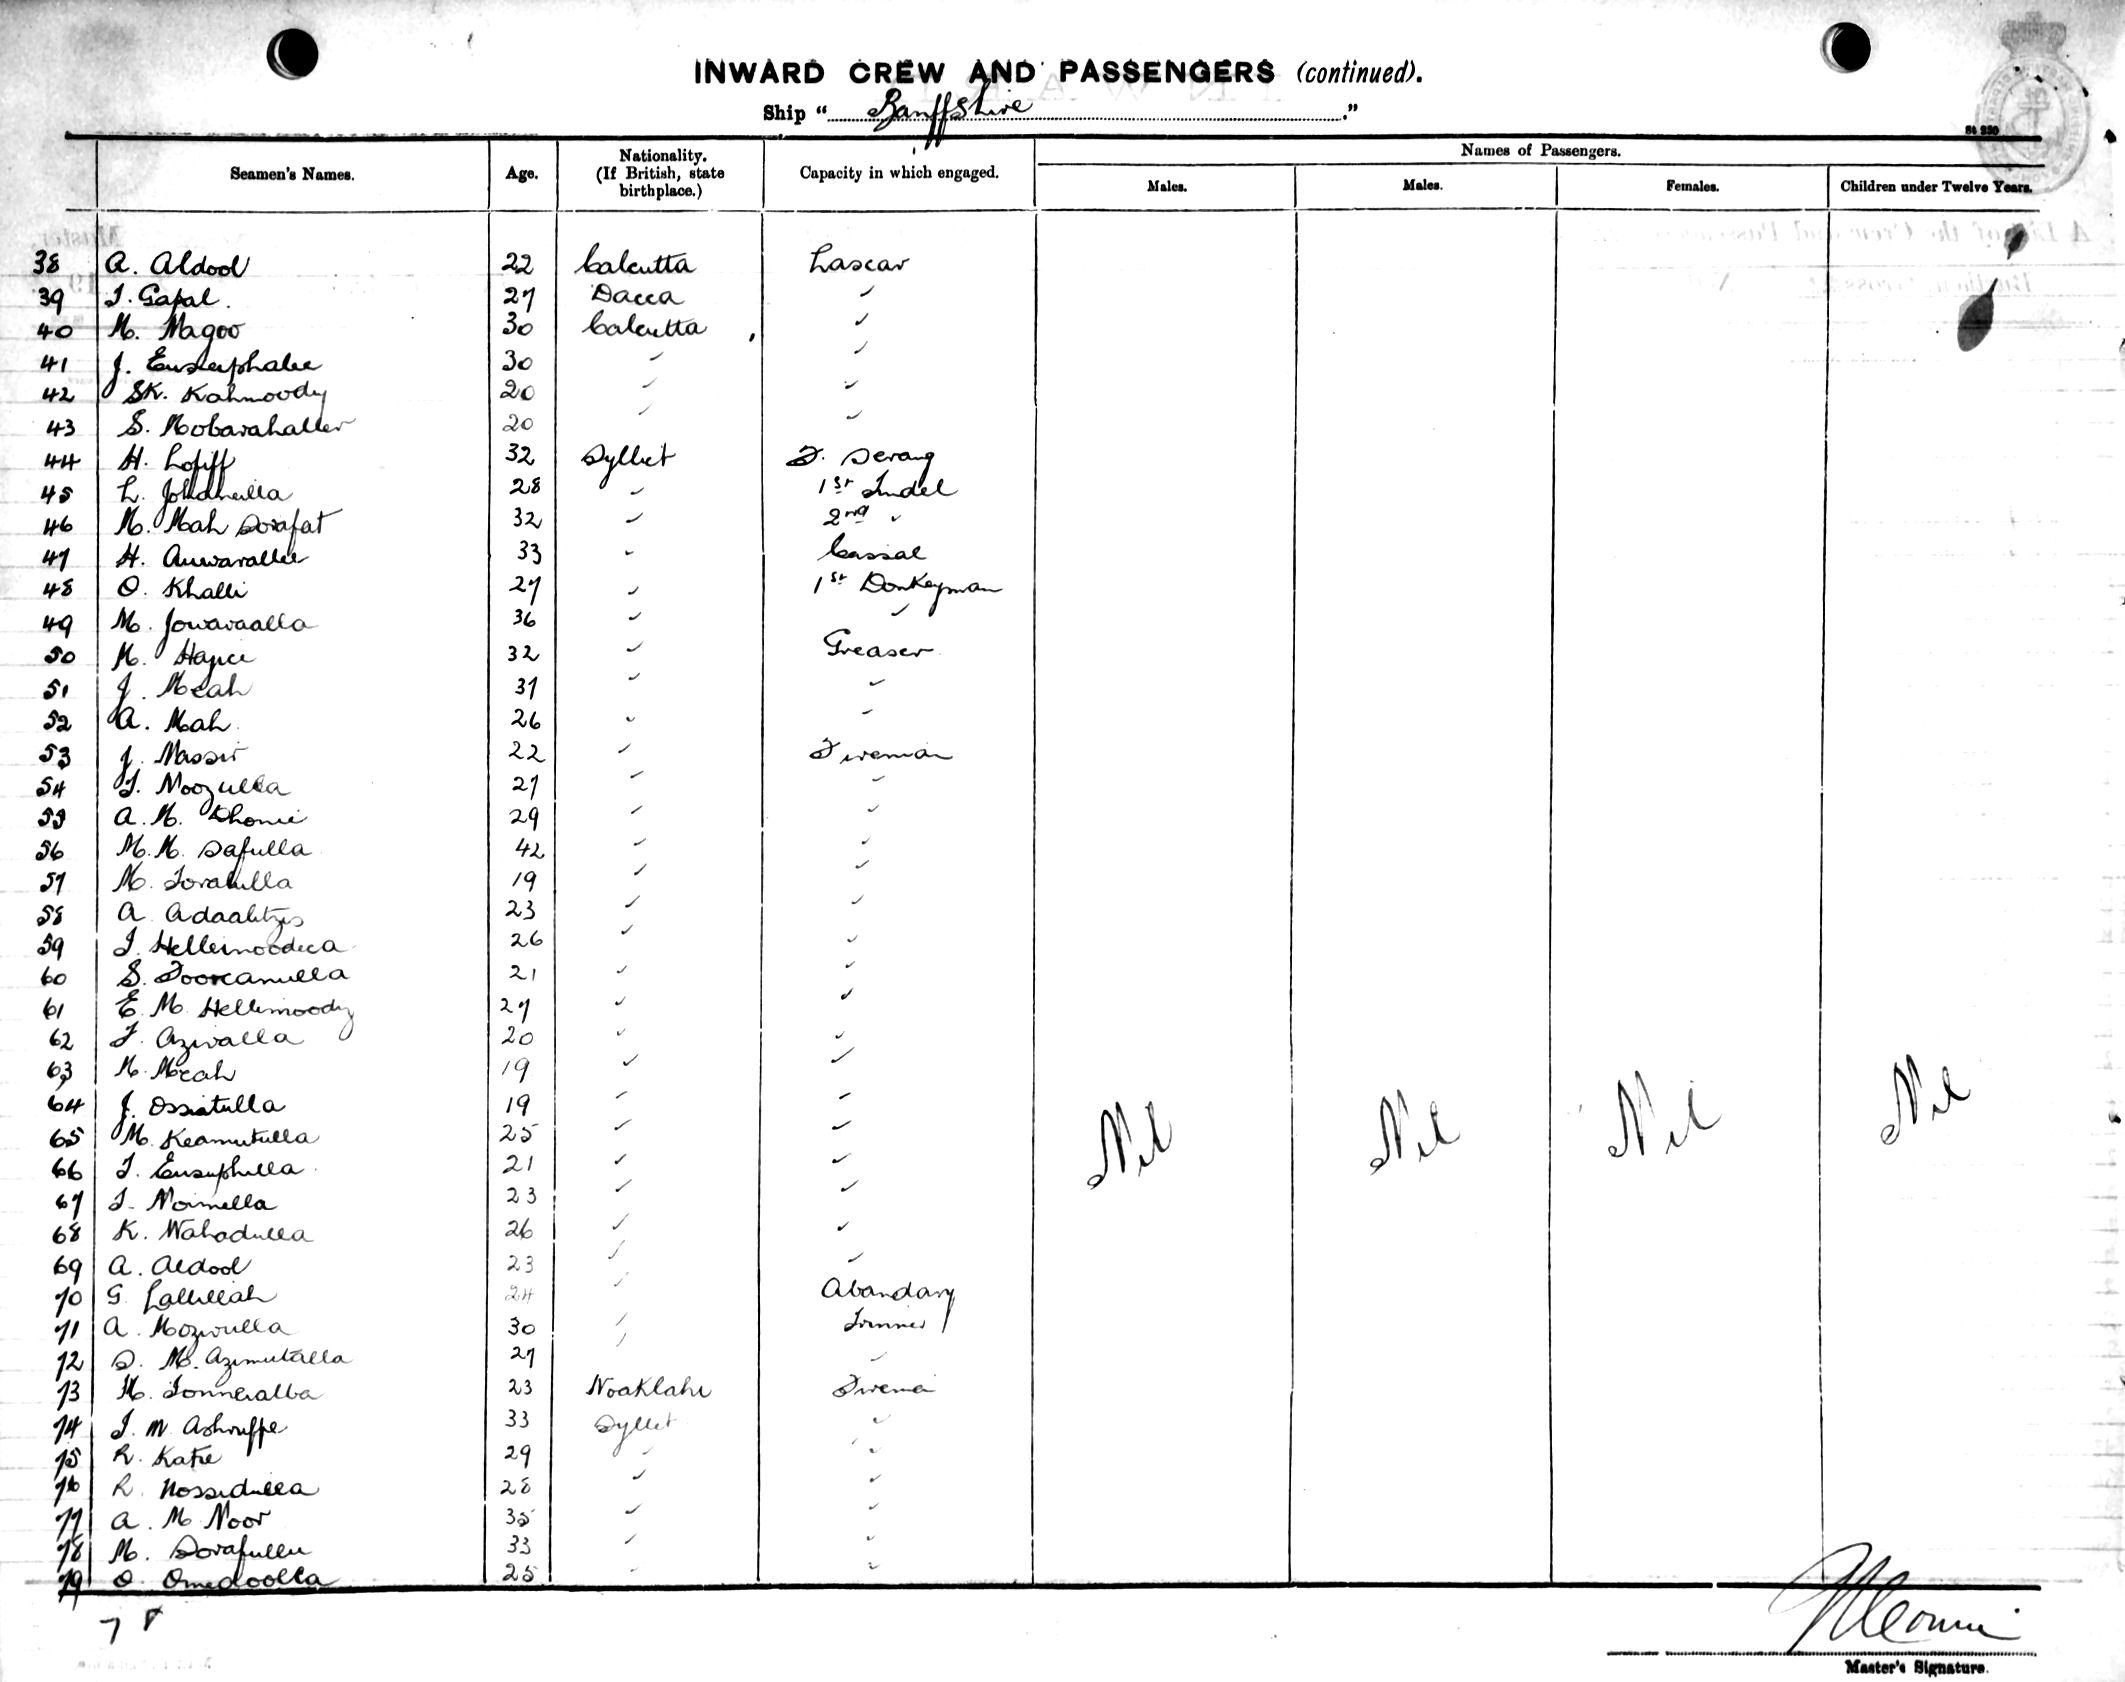 INWARD CREW AND PASSENGERS (continued).
Ship "Banffshire"
St 230
Seamen's Names. Age. Nationality. (If British, state birthplace.) Capacity in which engaged. Names of Passengers.
Males. Males. Females. Children under Twelve Years.
38 A. Aldool 22 Calcutta Lascar
39 J. Gapal. 27 Dacca "
40 M. Magoo 30 Calcutta "
41 J. Eusuphalee 30 " "
42 SK. Kahmoody 20 " "
43 S. Mobarahaller 20 " "
44 H. Lofiff 32 Syllet F. Serang
45 L. 28 " 1st Tindel
46 M. Mah Sorafat 32 " 2nd "
47 H. Anwarallee 33 " Cassal
48 O. Khalli 27 " 1st Donkeyman
49 M. Jowaraalla 36 " "
50 M. 32 " Greaser
51 J. Meah 37 " "
52 A. Mah 26 " "
53 J. Nassir 22 " Fireman
54 J. Noozulla 27 " "
55 A. M. Dhonie 29 " "
56 M. M. Safulla 42 " "
57 M. Toratulla 19 " "
58 A. 23 " "
59 J. Hellemoodeea 26 " "
60 S. Toorcanulla 21 " "
61 E. M. Hellemoody 27 " "
62 F. Azivalla 20 " "
63 M. Meah 19 " "
64 J. Ossiatulla 19 " "
65 M. Keamutulla 25 " "
66 J. Eusuphulla 21 " "
67 J. Noimella 23 " "
68 K. Wahadulla 26 " "
69 A. Aldool 23 " "
70 G. Lallillah 24 " Abandary
71 A. Mozirulla 30 " Trimmer
72 S. M. Azimutalla 27 " "
73 M. Tonneralba 23 Noaklahi Fireman
74 J. M Ashruffe 33 Syllet "
75 R. Katie 29 " "
76 R. Nossidulla 28 " "
77 A. M Noor 35 " "
78 M. Sorafulla 33 " "
79 O. Omedoolla 25 " "
Nil Nil Nil Nil
7
Master's Signature.